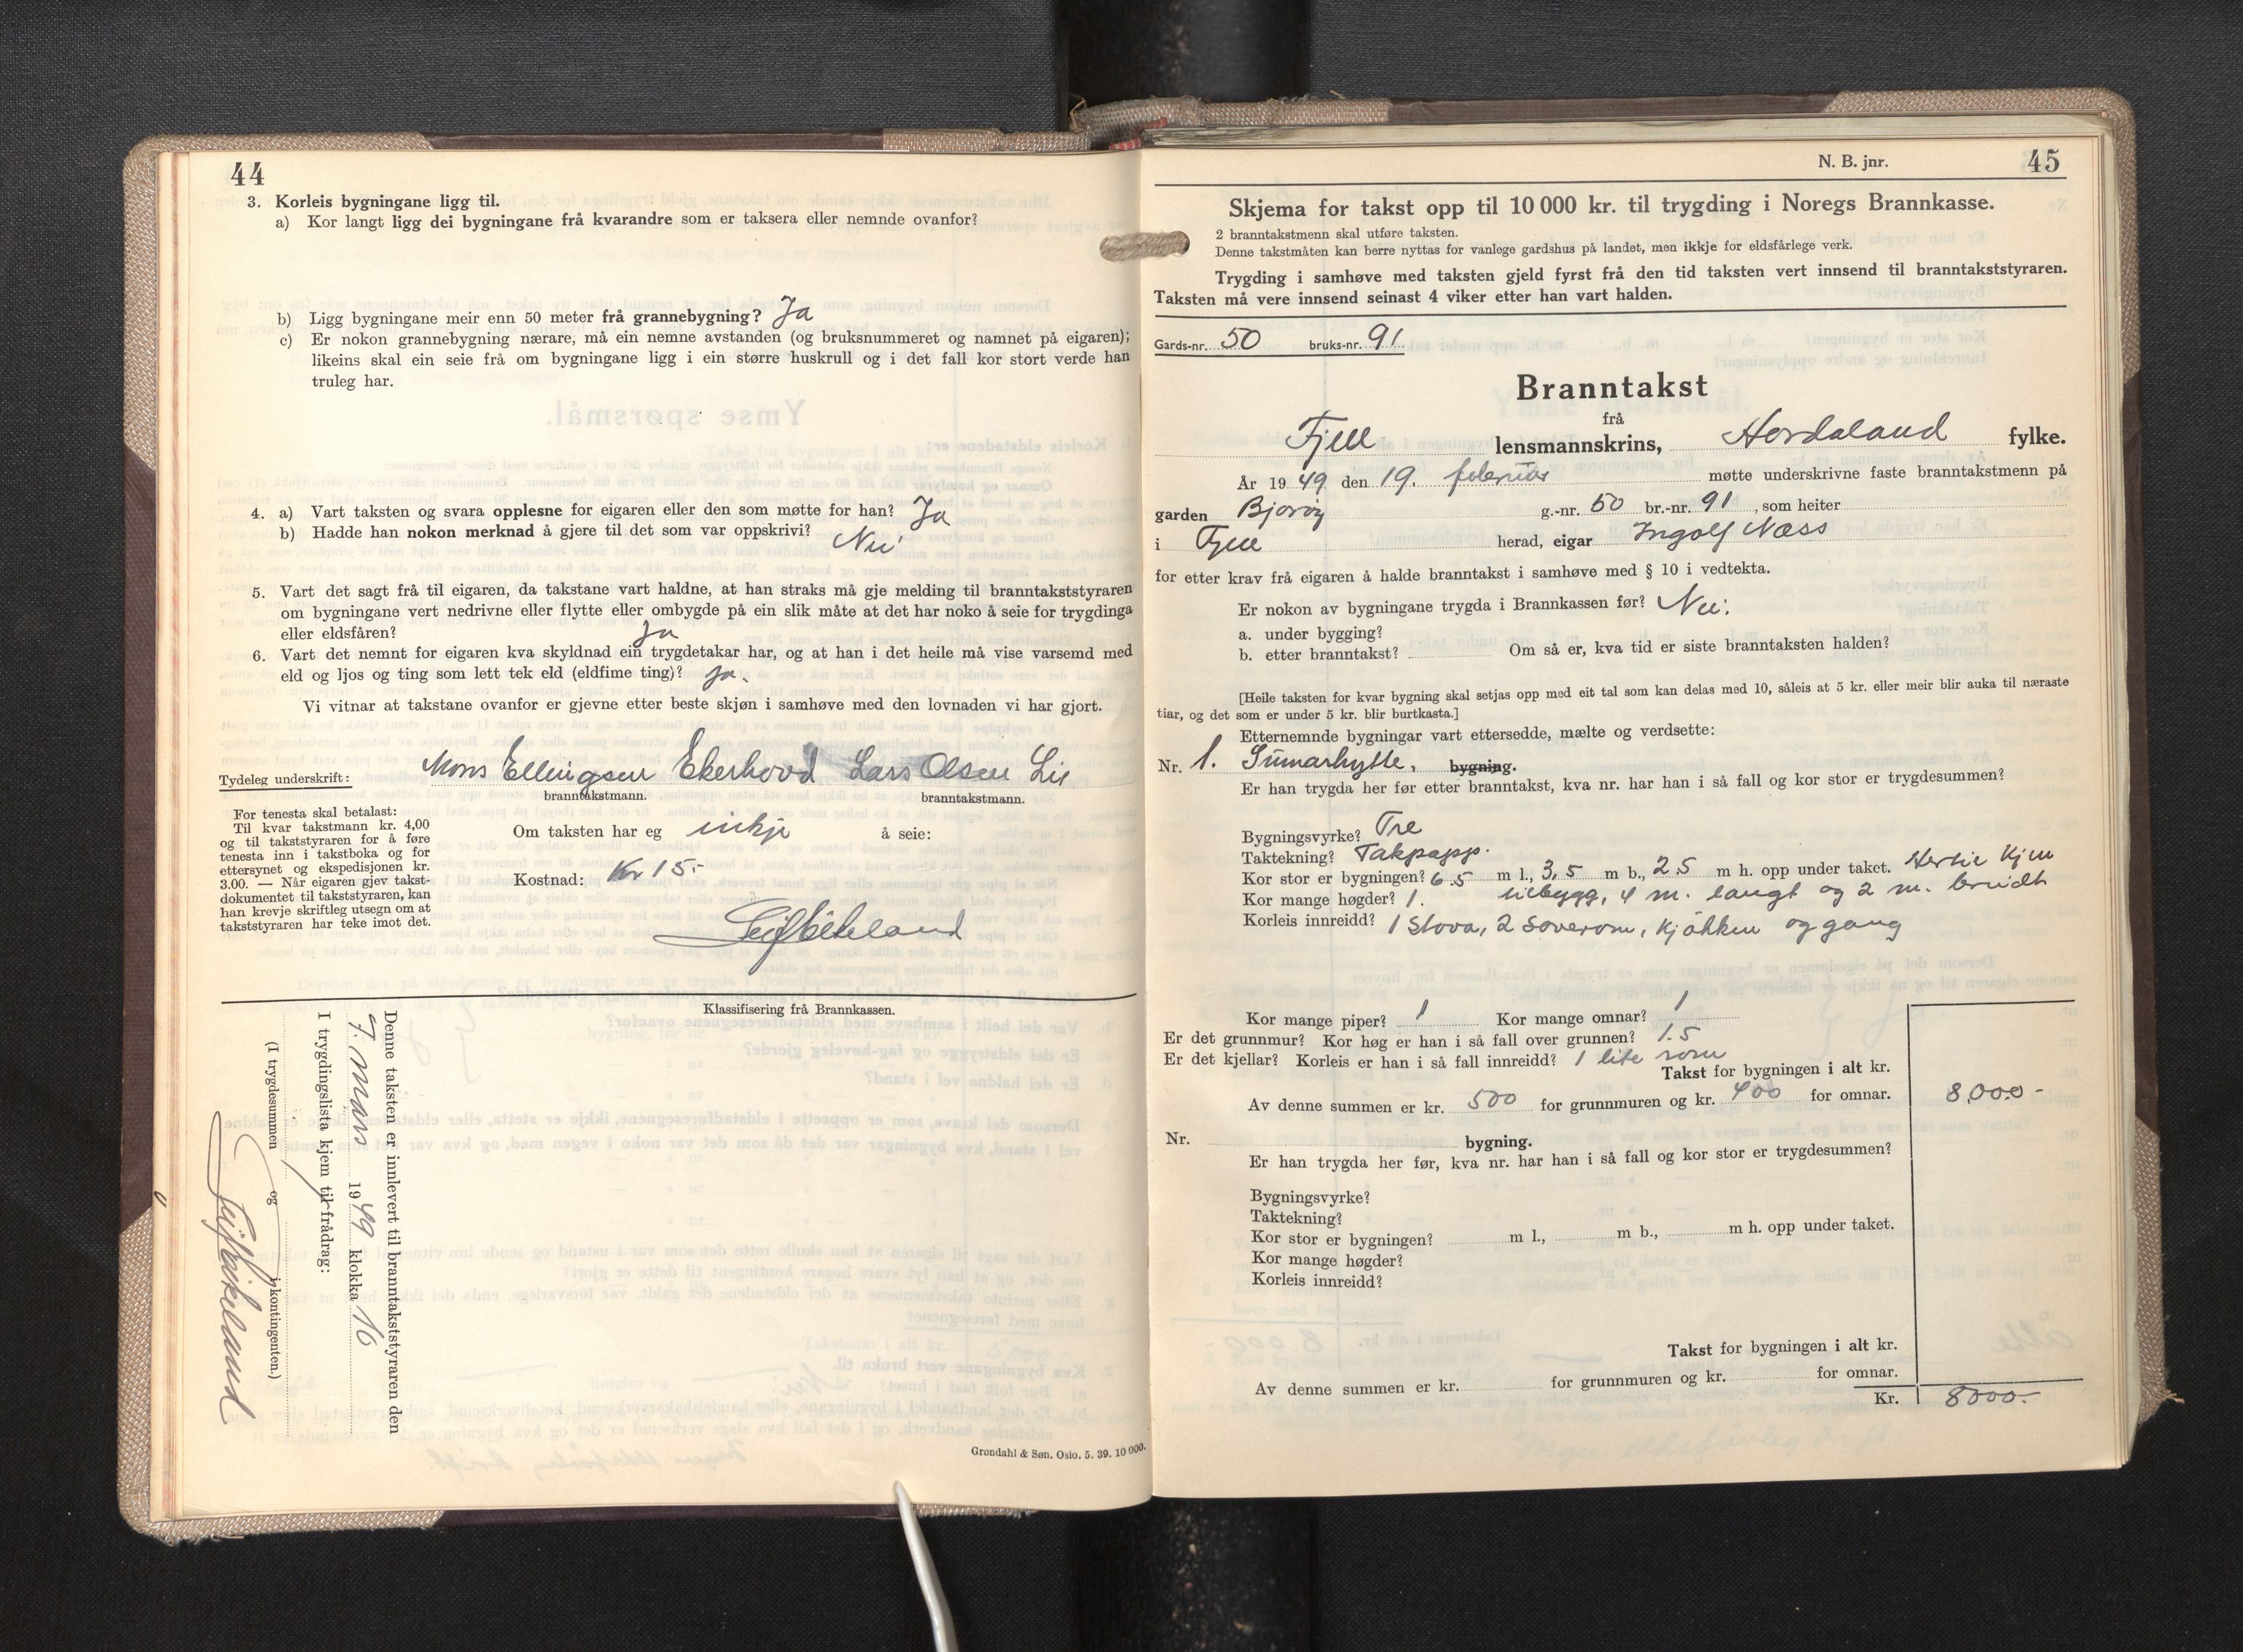 44
3. Korleis bygningane ligg til.
a) Kor langt ligg dei bygningane frå kvarandre som er taksera eller nemnde ovanfor?
b) Ligg bygningane meir enn 50 meter frå grannebygning? Ja
c) Er nokon grannebygning nærare, må ein nemne avstanden (og bruksnummeret og namnet på eigaren);
likeins skal ein seie frå om bygningane ligg i ein større huskrull og i det fall kor stort verde han
truleg har.
4. a) Vart taksten og svara opplesne for eigaren eller den som møtte for han? Ja
b) Hadde han nokon merknad å gjere til det som var oppskrivi? Nei
5. Vart det sagt frå til eigaren, da takstane vart haldne, at han straks må gje melding til branntakststyraren
om bygningane vert nedrivne eller flytte eller ombygde på ein slik måte at det har noko å seie for trygdinga
eller eldsfåren? Ja
6. Vart det nemnt for eigaren kva skyldnad ein trygdetakar har, og at han i det heile må vise varsemd med
eld og ljos og ting som lett tek eld (eldfime ting)? Ja.
Vi vitnar at takstane ovanfor er gjevne etter beste skjøn i samhøve med den lovnaden vi har gjort.
Tydeleg underskrift: Mons Ellingsen Ekerhovd Lars Olsen Lie
branntakstmann. branntakstmann.
For tenesta skal betalast:
Til kvar takstmann kr. 4,00
og til takststyraren for å føre
tenesta inn i takstboka og for
ettersynet og ekspedisjonen kr.
3.00. — Når eigaren gjev takst-
dokumentet til takststyraren, kan
han krevje skriftleg utsegn om at
takststyraren har teke imot det.
Om taksten har eg inkje å seie:
Kostnad: Kr 15.-
Klassifisering frå Brannkassen.
Denne taksten er innlevert til branntakststyraren den
7. mars 1949 klokka 16
I trygdingslista kjem til frådrag:
(I trygdesummen og i kontingenten.)
Grøndahl & Søn. Oslo. 5. 39. 10 000.
N. B. jnr. 45
Skjema for takst opp til 10 000 kr. til trygding i Noregs Brannkasse.
2 branntakstmenn skal utføre taksten.
Denne takstmåten kan berre nyttas for vanlege gardshus på landet, men ikkje for eldsfårlege verk.
Trygding i samhøve med taksten gjeld fyrst frå den tid taksten vert innsend til branntakststyraren.
Taksten må vere innsend seinast 4 viker etter han vart halden.
Gards-nr. 50 bruks-nr. 91.
Branntakst
frå
Fjell lensmannskrins, Hordaland fylke.
År 1949 den 19. februar møtte underskrivne faste branntakstmenn på
garden Bjorøy g.-nr. 50 br.-nr. 91, som heiter
i Fjell herad, eigar Ingolf Næss
for etter krav frå eigaren å halde branntakst i samhøve med § 10 i vedtekta.
Er nokon av bygningane trygda i Brannkassen før? Nei.
a. under bygging?
b. etter branntakst? Om så er, kva tid er siste branntaksten halden?
[Heile taksten for kvar bygning skal setjas opp med eit tal som kan delas med 10, såleis at 5 kr. eller meir blir auka til næraste
tiar, og det som er under 5 kr. blir burtkasta.]
Etternemnde bygningar vart ettersedde, mælte og verdsette:
Nr. 1. Sumarhytte, bygning.
Er han trygda her før etter branntakst, kva nr. har han i så fall og kor stor er trygdesummen?
Bygningsvyrke? Tre
Taktekning? Takpapp.
Kor stor er bygningen? 6.5 m l., 3,5 m b., 2.5 m h. opp under taket. Hertie kjem
Kor mange høgder? 1. tilbygg, 4 m. langt og 2 m. breidt
Korleis innreidd? 1 stova, 2 soverom, kjøkken og gang
Kor mange piper? 1 Kor mange omnar? 1
Er det grunnmur? Kor høg er han i så fall over grunnen? 1.5
Er det kjellar? Korleis er han i så fall innreidd? 1 lite rom
Takst for bygningen i alt kr.
Av denne summen er kr. 500 for grunnmuren og kr. 400 for omnar. 8.000-
Nr. bygning.
Er han trygda her før, kva nr. har han i så fall og kor stor er trygdesummen?
Bygningsvyrke?
Taktekning?
Kor stor er bygningen? m l., m b., m h. opp under taket.
Kor mange høgder?
Korleis innreidd?
Takst for bygningen i alt kr.
Av denne summen er kr. for grunnmuren og kr. for omnar.
Kr. 8000.-